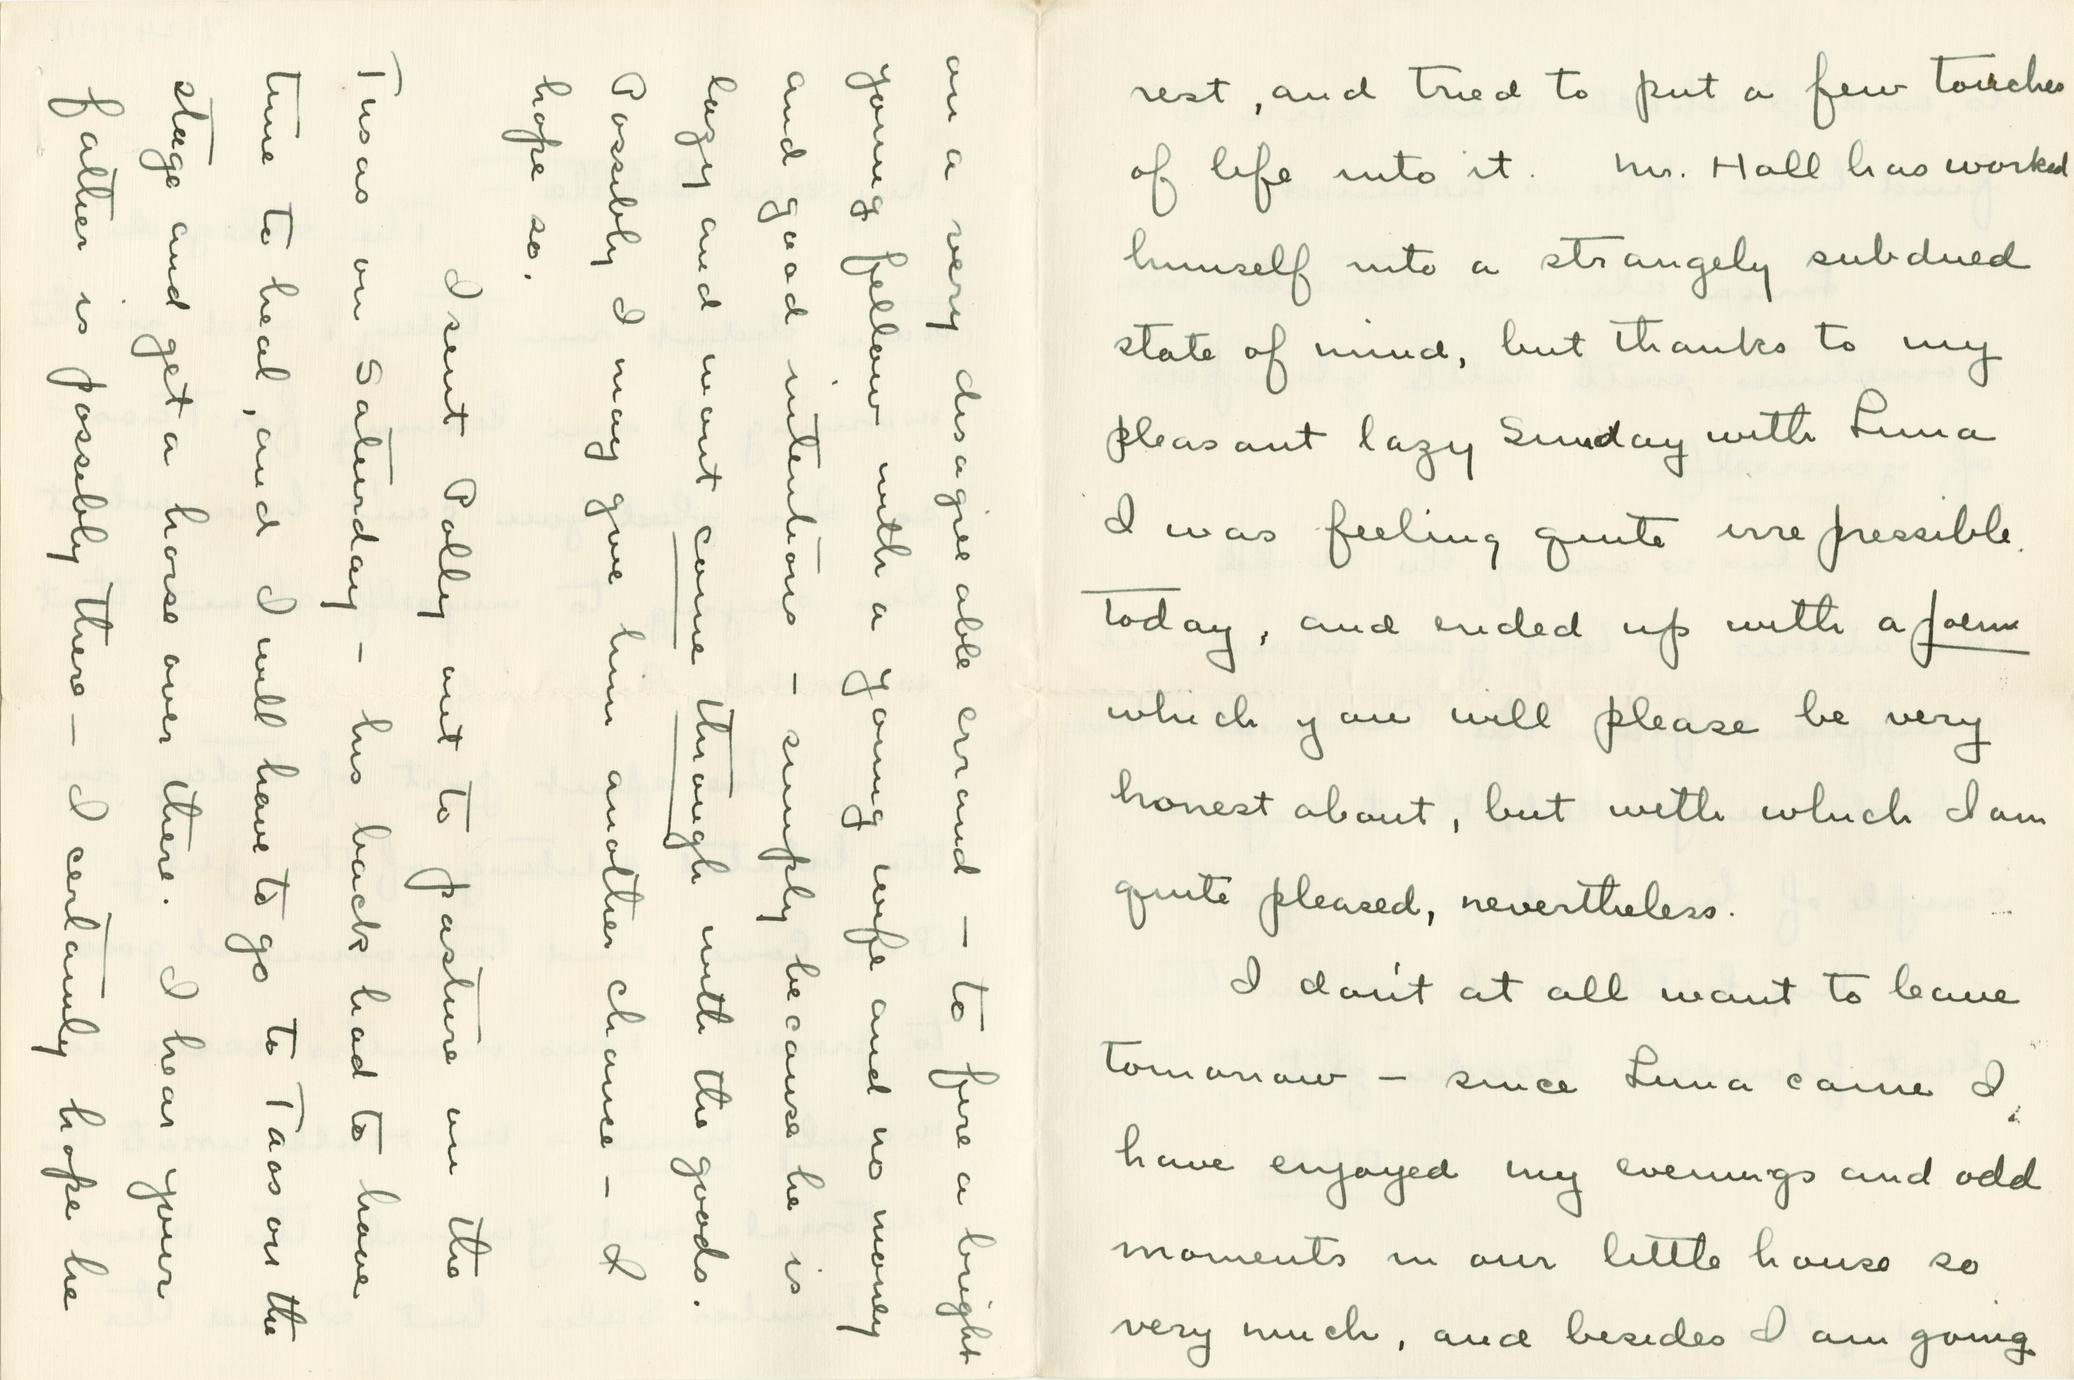 rest, and tried to put a few touches
of life into it. Mr. Hall has worked
himself into a strangely subdued
state of mind, but thanks to my
pleasant lazy Sunday with Luna
I was feeling quite irrepressible
today, and ended up with a poem
which you will please be very
honest about, but with which I am
quite pleased, nevertheless.
I don't at all want to leave
tomorrow – since Luna came I
have enjoyed my evenings and odd
moments in our little house so
very much, and besides I am going
on a very disagreeable errand – to fire a bright
young fellow with a young wife and no money
and good intentions – simply because he is
lazy and wont come through with the goods.
Possibly I may give him another chance – I
hope so.
I sent Polly out to pasture on the
Tusas on Saturday – his back had to have
time to heal, and I will have to go to Taos on the
stage and get a horse over there. I hear your
father is possibly there – I certainly hope he